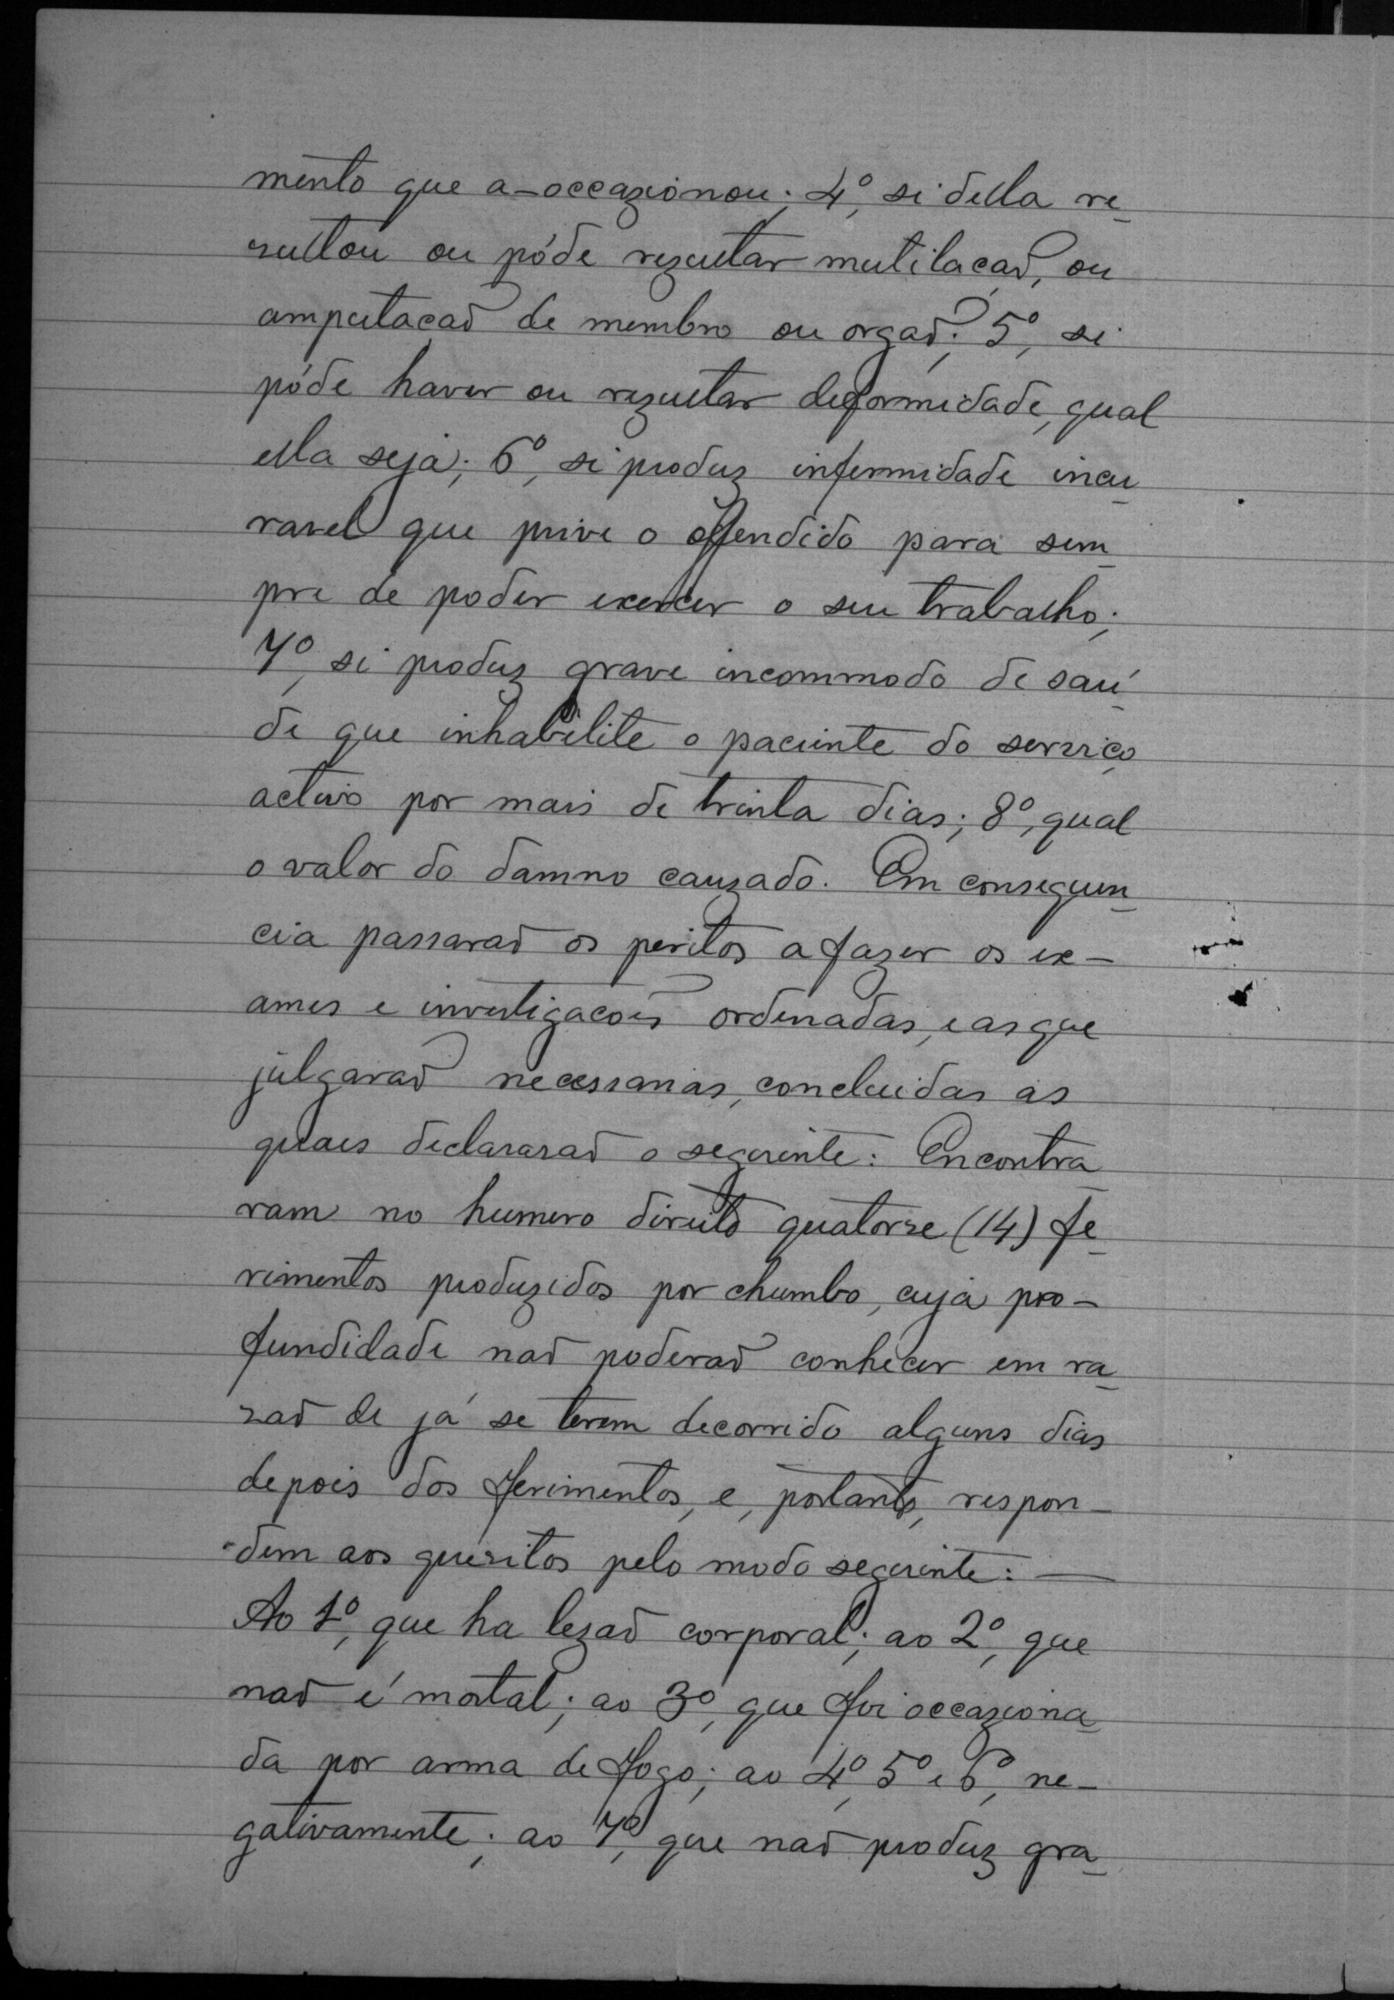 mento que a-occazionou; 4º, si della re-
zultou ou póde rezultar mutilação, ou
amputação de membro ou orgão; 5º, si
póde haver ou rezultar deformidade, qual
ella seja; 6º, si produz infermidade incu-
ravel que prive o offendido para sem-
pre de poder exercer o seu trabalho;
7º, si produz grave incommodo de saú-
de que inhabilite o paciente do serviço
activo por mais de trinta dias; 8º, qual
o valor do damno cauzado. Em consequen-
cia passarão os peritos a fazer os ex-
ames e investigacões ordenadas, e as que
julgarão necessarias, concluidas as
quaes declararão o seguinte: Encontra-
ram no humero direito quatorze (14) fe-
rimentos produzidos por chumbo, cuja pro-
fundidade não poderão conhecer em ra-
zão de já se terem decorrido alguns dias
depois dos ferimentos, e, portanto, respon-
dem aos quézitos pelo modo seguinte: —
Ao 1º, que ha lezão corporal; ao 2º, que
não é mortal; ao 3º, que foi occaziona-
da por arma de fogo; ao 4º, 5º e 6º, ne-
gativamente; ao 7º, que não produz gra-